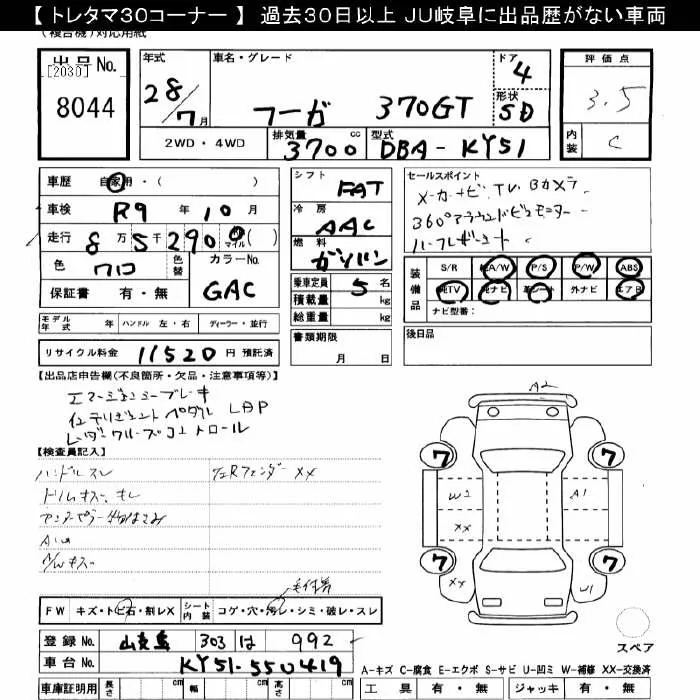 【 トレタマ30コーナー 】 過去30日以上 JU岐阜に出品歴がない車両
(複合機)対応用紙
出品No. [2030] 8044
年式 28/7月
車名・グレード フーガ 370GT
ドア 4
形状 SD
評価点 3.5
内装 C
2WD・4WD
排気量 3700 cc
型式 DBA-KY51
車歴 自家用・( )
車検 R9 年 10 月
走行 8万5千2900 km マイル ( )
色 クロ 色替
カラーNo. GAC
保証書 有・無
シフト FAT
冷房 AAC
燃料 ガソリン
乗車定員 5 名
積載量 kg
総重量 kg
セールスポイント
メーカーナビ、TV、Bカメラ
360°アラウンドビューモニター
ハーフレザーシート
装備品 S/R 純A/W P/S P/W ABS
純TV 純ナビ 革シート 外ナビ エアB
ナビ型番:
モデル年式 年 ハンドル 左・右 ディーラー・並行
書類期限 月 日
後日品
リサイクル料金 11520 円 預託済
【出品店申告欄(不良箇所・欠品・注意事項等)】
エマージェンシーブレーキ
インテリジェントペダル LDP
レーダークルーズコントロール
【検査員記入】
ハンドルスレ
左Rフェンダー XX
ドリムキズ、モレ
A/Wキズ
A2
7 7
W2 A1
XX
7 7
XX U1
スペア
FW キズ・トビ石・割レX シート内装 コゲ・穴・汚レ・シミ・破レ・スレ
登録No. 303 は 992
車台No. KY51-550419
A-キズ C-腐食 E-エクボ S-サビ U-凹ミ W-補修 XX-交換済
車庫証明用 長さ cm 幅 cm 高さ cm
工具 有・無 ジャッキ 有・無